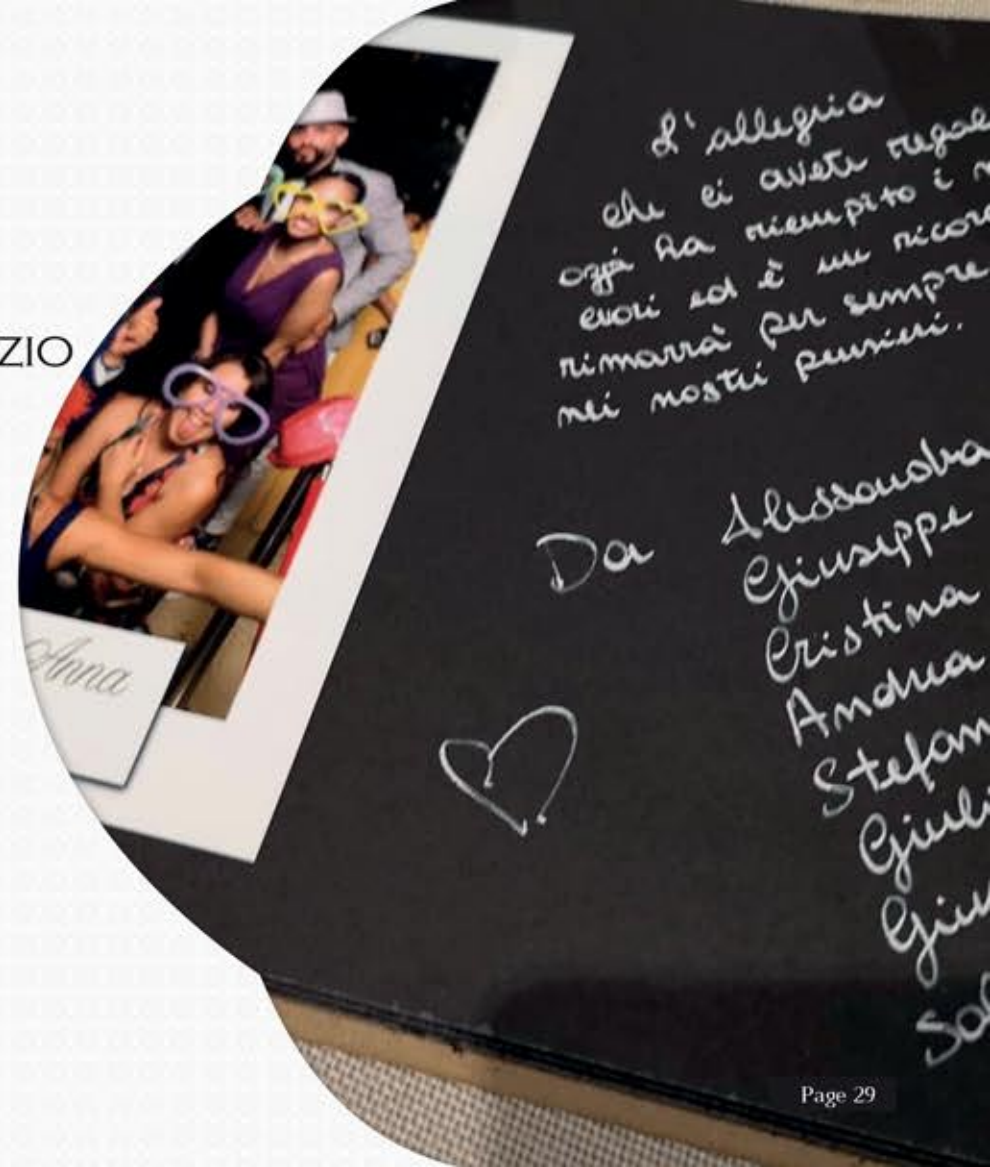 L'allegria
che ci avete regal
oggi ha riempito i n
cuori ed è un ricord
rimarrà per sempre
nei nostri pensieri.
Da Alessandra
Giuseppe
Cristina
Andrea
Stefan
Giuli
Giu
Sal
ZIO
Anna
Page 29